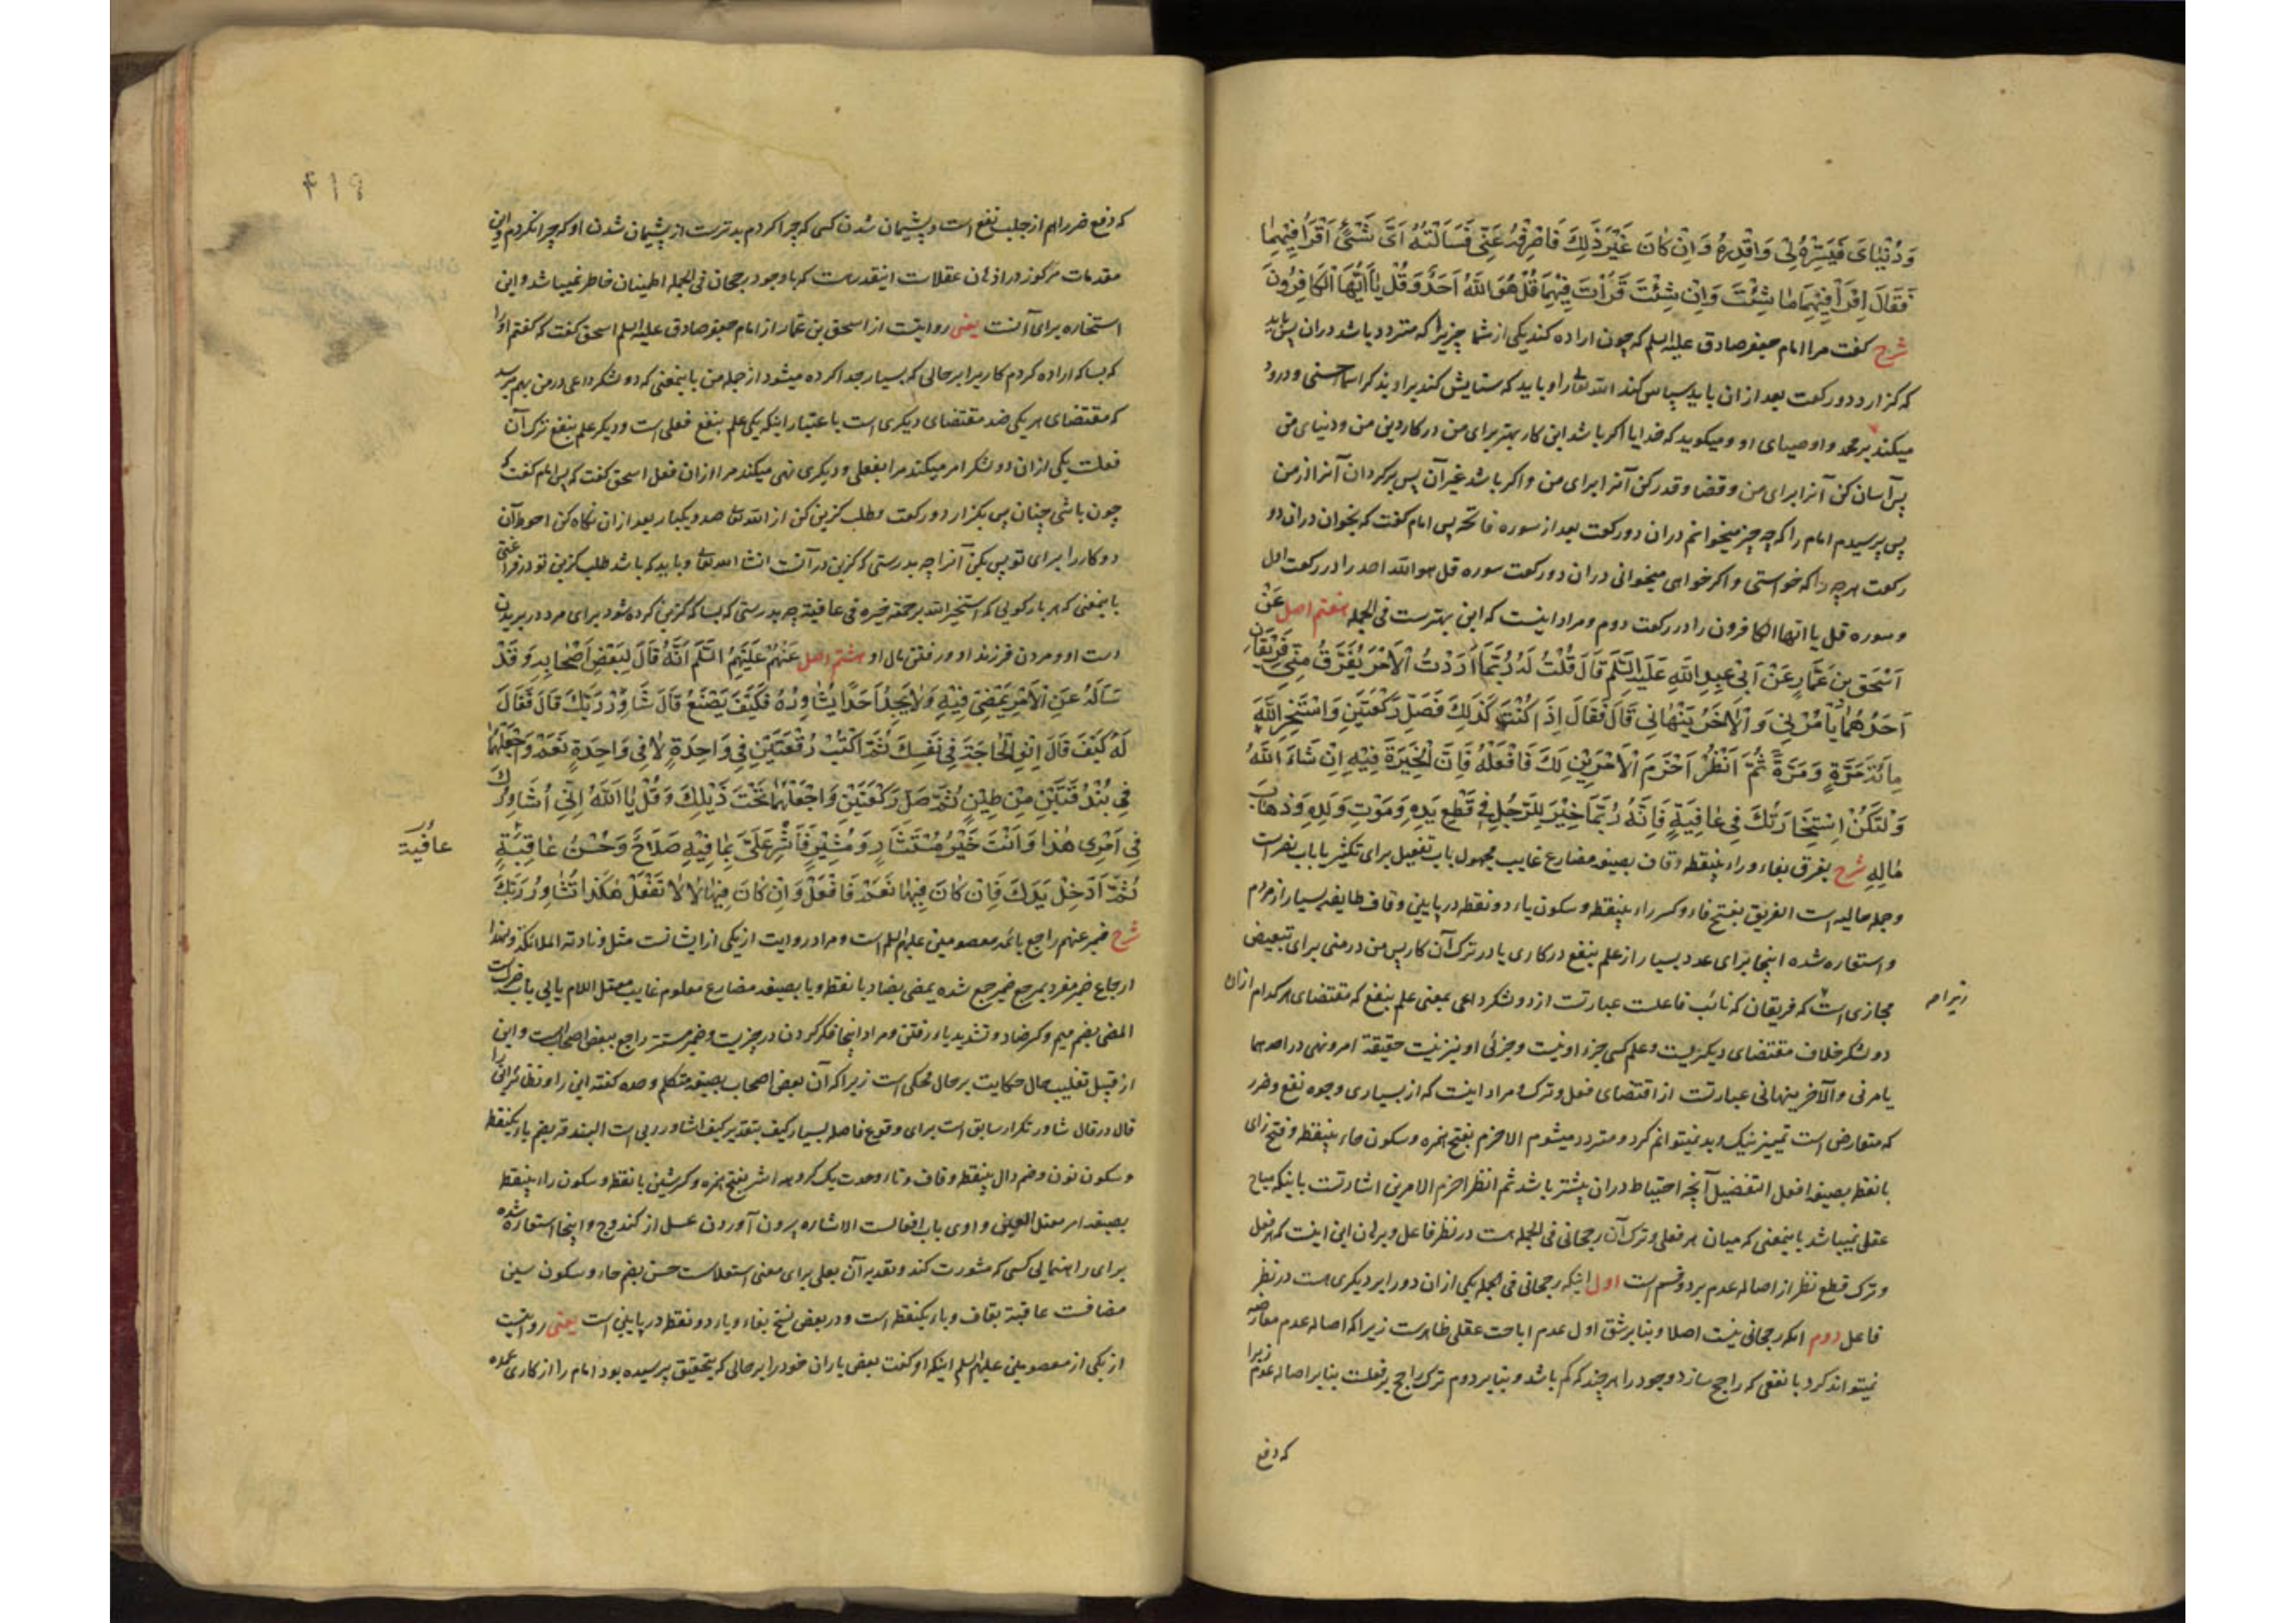 وَدُنْيَايَ فَيَسِّرْهُ لِي وَاقْدِرْهُ وَاِنْ كَانَ غَيْرَ ذٰلِكَ فَاصْرِفْهُ عَنِّي فَسَاَلْتُهُ اَيَّ شَيْءٍ اَقْرَأُ فِيْهِمَا
فَقَالَ اِقْرَأْ فِيْهِمَا مَا شِئْتَ وَاِنْ شِئْتَ قَرَأْتَ فِيْهِمَا قُلْ هُوَ اللّٰهُ اَحَدٌ وَقُلْ يَا اَيُّهَا الْكَافِرُونَ
شرح گفت مرا امام جعفر صادق علیه السلم که چون اراده کند یکی از شما چیزیرا که متردد باشد دران پس باید
که گزارد دو رکعت بعد ازان باید سپاس کند الله تعالی را و باید که ستایش کند براو بذکر اسماء حسنی و درود
میکند بر محمد و اوصیای او و میگوید که خدایا اگر باشد این کار بهتر برای من در کار دین من و دنیای من
پس آسان کن آنرا برای من و قضا و قدر کن آنرا برای من و اگر باشد غیر آن پس برگردان آنرا از من
پس پرسیدم امام را که چه چیز میخوانم دران دو رکعت بعد از سوره فاتحه پس امام گفت که بخوان دران دو
رکعت هر چه را که خواستی و اگر خواهی میخوانی دران دو رکعت سوره قل هو الله احد را در رکعت اول
و سوره قل یا ایها الکافرون را در رکعت دوم و مراد اینست که این بهترست فی الجمله هفتم اصل عَنْ
اِسْحٰقَ بْنِ عَمَّارٍ عَنْ اَبِي عَبْدِ اللّٰهِ عَلَيْهِ السَّلَم قَالَ قُلْتُ لَهُ رُبَّمَا اَرَدْتُ الْاَمْرَ يُفَرَّقُ مِنِّي فَرِيْقَانِ
اَحَدُهُمَا يَأْمُرُنِي وَالْاٰخَرُ يَنْهَانِي قَالَ فَقَالَ اِذَا كُنْتَ كَذٰلِكَ فَصَلِّ رَكْعَتَيْنِ وَاسْتَخِرِ اللّٰهَ
مِائَةَ مَرَّةٍ وَمَرَّةً ثُمَّ انْظُرْ اَحْزَمَ الْاَمْرَيْنِ لَكَ فَافْعَلْهُ فَاِنَّ الْخِيَرَةَ فِيْهِ اِنْ شَاءَ اللّٰهُ
وَلْتَكُنْ اِسْتِخَارَتُكَ فِي عَافِيَةٍ فَاِنَّهُ رُبَّمَا خِيْرَ لِلرَّجُلِ فِي قَطْعِ يَدِهِ وَمَوْتِ وَلَدِهِ وَذَهَابِ
مَالِهِ شرح یفرق بفاء و راء بینقطه و قاف بصیغه مضارع غایب مجهول باب تفعیل برای تکثیر یا باب نصر است
و جمله حالیه است الفریق بفتح فاء و کسر راء بینقطه و سکون یاء دو نقطه در پایین و قاف طایفه بسیار از مردم
و استعاره شده اینجا برای عدد بسیار از علم بنفع در کاری یا در ترک آن کار پس من در منی برای تبعیض
مجازی است که فریقان که نائب فاعلست عبارتست از دو لشکر داعی بمعنی علم بنفع که مقتضای هر کدام ازان
زیرا مه
دو لشکر خلاف مقتضای دیگریست و علم کسی جزء او نیست و جزئی او نیز نیست حقیقة امر و نهی در احدهما
یامرنی و الآخر ینهانی عبارتست از اقتضای فعل و ترک و مراد اینست که از بسیاری وجوه نفع و ضرر
که متعارض است تمییز نیک و بد نمیتوانم کرد و متردد میشوم الاحزم بفتح همزه و سکون حاء بینقطه و فتح زای
بانقطه بصیغه افعل التفضیل آنچه احتیاط دران بیشتر باشد ثم انظر احزم الامرین اشارتست باینکه مباح
عقلی نمیباشد باینمعنی که میان هر فعلی و ترک آن رجحانی فی الجمله هست در نظر فاعل و برهان این اینست که هر فعل
و ترک قطع نظر از اصاله عدم بر دو قسم است اول اینکه رجحانی فی الجمله یکی ازان دو را بر دیگری هست در نظر
فاعل دوم انکه رجحانی نیست اصلا و بنا بر شق اول عدم اباحت عقلی ظاهرست زیرا که اصاله عدم معارضه
نمیتواند کرد با نفعی که راجح سازد وجود را هر چند که کم باشد و بنا بر دوم ترک راجح بر فعلست بنا بر اصاله عدم زیرا
که دفع
۴۱۹
که دفع ضرر اهم از جلب نفع است و پشیمان شدن کسی که چرا کردم بدترست از پشیمان شدن او که چرا نکردم و این
مقدمات مرکوز در اذهان عقلاست اینقدر هست که با وجود رجحان فی الجمله اطمینان خاطر نمیباشد و این
استخاره برای آنست یعنی روایتست از اسحق بن عمار از امام جعفر صادق علیه السلم اسحق گفت که گفتم او را
که بسا که اراده کردم کاریرا بر حالی که بسیار جدا کرده میشود از جمله من باینمعنی که دو لشکر داعی در من بهم میرسد
که مقتضای هر یکی ضد مقتضای دیگری است باعتبار اینکه یکی علم بنفع فعلی است و دیگر علم بنفع ترک آن
فعلست یکی ازان دو لشکر امر میکند مرا بفعلی و دیگری نهی میکند مرا ازان فعل اسحق گفت که پس امام گفت که
چون باشی چنان پس بگزار دو رکعت و طلب گزین کن از الله تعالی صد و یکبار بعد ازان نگاه کن احوط آن
دو کار را برای تو پس بکن آنرا چه بدرستی که گزین در آنست انشاء الله تعالی و باید که باشد طلب گزین تو در فراغتی
باینمعنی که هر بار گویی که استخیر الله برحمته خیرة فی عافیة چه بدرستی که بسا که گزین کرده شود برای مرد در بریدن
دست او و مردن فرزند او و رفتن مال او هشتم اصل عَنْهُمْ عَلَيْهِمُ السَّلَم اَنَّهُ قَالَ لِبَعْضِ اَصْحَابِهِ وَقَدْ
سَاَلَهُ عَنِ الْاَمْرِ يَمْضِي فِيْهِ وَلَا يَجِدُ اَحَدًا يُشَاوِرُهُ فَكَيْفَ يَصْنَعُ قَالَ شَاوِرْ رَبَّكَ قَالَ فَقَالَ
لَهُ كَيْفَ قَالَ اِنْوِ الْحَاجَةَ فِي نَفْسِكَ ثُمَّ اكْتُبْ رُقْعَتَيْنِ فِي وَاحِدَةٍ لَا وَفِي وَاحِدَةٍ نَعَمْ وَاجْعَلْهُمَا
فِي بُنْدُقَتَيْنِ مِنْ طِيْنٍ ثُمَّ صَلِّ رَكْعَتَيْنِ وَاجْعَلْهُمَا تَحْتَ ذَيْلِكَ وَقُلْ يَا اَللّٰهُ اِنِّي اُشَاوِرُكَ
فِي اَمْرِي هٰذَا وَاَنْتَ خَيْرُ مُسْتَشَارٍ وَمُشِيْرٍ فَاَشِرْ عَلَيَّ بِمَا فِيْهِ صَلَاحٌ وَحُسْنُ عَاقِبَةٍ
عافیة
ثُمَّ اَدْخِلْ يَدَكَ فَاِنْ كَانَ فِيْهَا نَعَمْ فَافْعَلْ وَاِنْ كَانَ فِيْهَا لَا لَا تَفْعَلْ هٰكَذَا تُشَاوِرُ رَبَّكَ
شرح ضمیر عنهم راجع بائمه معصومین علیهم السلم است و مراد روایت از یکی از ایشانست مثل و نادته الملائکة و لهذا
ارجاع ضمیر مفرد بمرجع ضمیر جمع شده یمضی بضاد بانقطه و یا بصیغه مضارع معلوم غایب معتل اللام یایی باب ضرب است
المضی بضم میم و کسر ضاد و تشدید یاء رفتن و مراد اینجا فکر کردن در چیزیست و ضمیر مستتر راجع ببعض اصحابست و این
از قبیل تغلیب حال حکایت بر حال محکی است زیرا که آن بعض اصحاب بصیغه متکلم وحده گفته این را و نظائر این را
قال در قال شاور تکرار سابق است برای وقوع فاصله بسیار کیف بتقدیر کیف اشاور ربی است البندقة بضم باء یکنقطه
و سکون نون و ضم دال بینقطه و قاف و تاء وحدت یک گروهه اشر بفتح همزه و کسر شین بانقطه و سکون راء بینقطه
بصیغه امر معتل العین واوی باب افعالست الاشاره بیرون آوردن عسل از کندوج و اینجا استعاره شده
برای راهنمایی کسی که مشورت کند و تعدیه آن بعلی برای معنی استعلاست حسن بضم حاء و سکون سین
مضافست عاقبة بقاف و باء یکنقطه است و در بعض نسخ بفاء و یاء دو نقطه در پایین است یعنی روایتست
از یکی از معصومین علیهم السلم اینکه او گفت بعض یاران خود را بر حالی که بتحقیق پرسیده بود امام را از کاری عمده